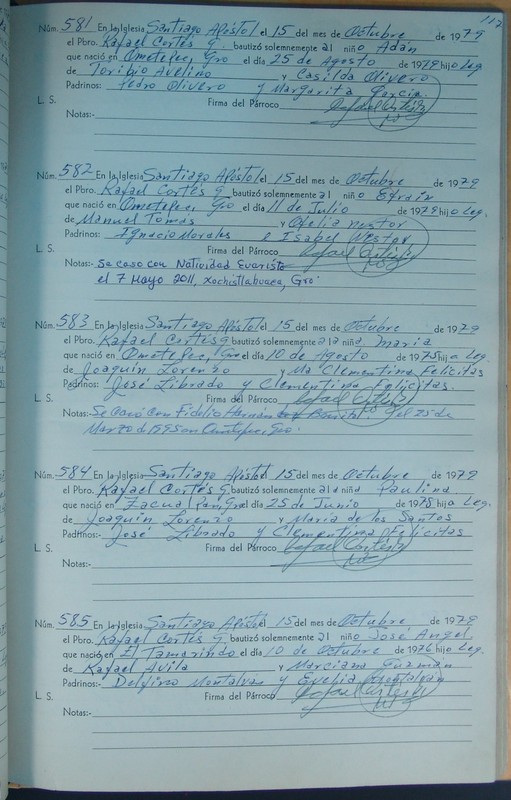 117
Núm. 581 En la Iglesia Santiago Apóstol el 15 del mes de Octubre de 1979
el Pbro. Rafael Cortés G. bautizó solemnemente al niño Adán
que nació en Ometepec, Gro el día 25 de Agosto de 1979 hijo Leg.
de Toribio Avelino y Casilda Olivero
Padrinos: Pedro Olivero y Margarita García
L. S. Firma del Párroco Rafael Cortés G
Notas:-
Núm. 582 En la Iglesia Santiago Apóstol el 15 del mes de Octubre de 1979
el Pbro. Rafael Cortés G bautizó solemnemente al niño Efraín
que nació en Ometepec, Gro el día 11 de Julio de 1979 hijo Leg.
de Manuel Tomás y Ofelia Nestor
Padrinos: Ignacio Morales e Isabel Nestor
L. S. Firma del Párroco Rafael Cortés G
Notas:- Se caso con Natividad Evaristo
el 7 Mayo 2011, Xochistlahuaca, Gro.
Núm. 583 En la Iglesia Santiago Apóstol el 15 del mes de Octubre de 1979
el Pbro. Rafael Cortés G bautizó solemnemente a la niña María
que nació en Ometepec, Gro el día 10 de Agosto de 1975 hija Leg.
de Joaquín Lorenzo y Ma Clementina Felicitas
Padrinos: José Librado y Clementina Felicitas.
L. S. Firma del Párroco Rafael Cortés G
Notas:- Se casó con Fidelio el 25 de
Marzo d 1995 en Ometepec, Gro.
Núm. 584 En la Iglesia Santiago Apóstol el 15 del mes de Octubre de 1979
el Pbro. Rafael Cortés G. bautizó solemnemente al niña Paulina
que nació en el día 25 de Junio de 1978 hija Leg.
de Joaquín Lorenzo y María de los Santos
Padrinos:- José Librado y Clementina Felicitas
L. S. Firma del Párroco Rafael Cortés G
Notas:-
Núm. 585 En la Iglesia Santiago Apóstol el 15 del mes de Octubre de 1979
el Pbro. Rafael Cortés G bautizó solemnemente al niño José Angel
que nació en El Tamarindo el día 10 de Octubre de 1976 hijo Leg.
de Rafael Avila y Marciana Guzmán
Padrinos:- Delfino Montalván y Evelia Montalván
L. S. Firma del Párroco Rafael Cortés G
Notas:-